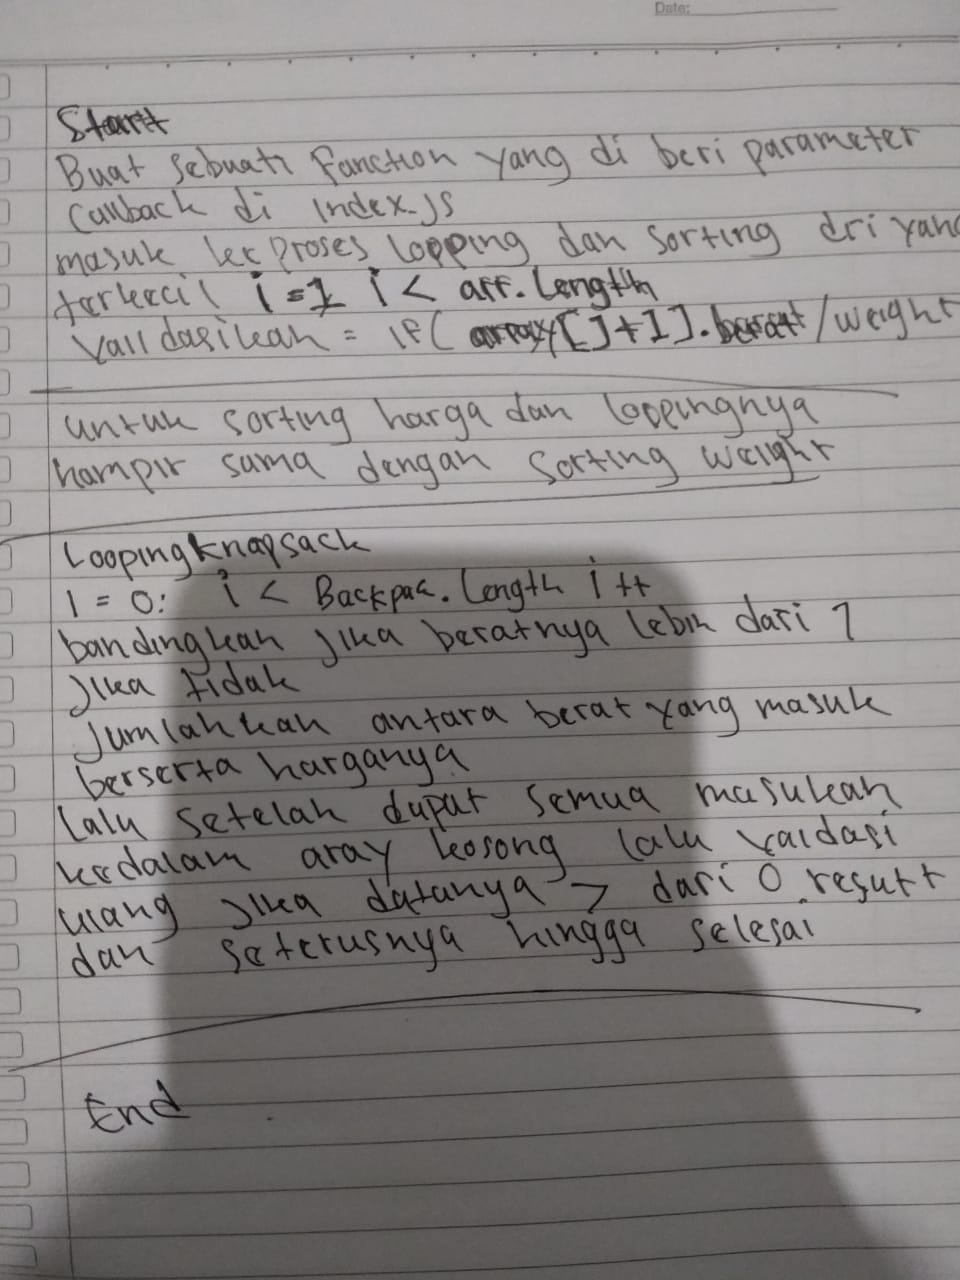 Date:
Start
Buat sebuah Function yang di beri parameter
Callback di Index.js
masuk ke proses lopping dan sorting dri yang
terkecil i=1 i < arr.length
Validasikan = IF( array[J+1].berat/weight
untuk sorting harga dan loopingnya
hampir sama dengan sorting weight
Looping knapsack
I = 0: i < Backpac.length i++
bandingkan jika beratnya lebih dari 7
jika tidak
jumlahkan antara berat yang masuk
berserta harganya
Lalu setelah dapat semua masukan
kedalam aray kosong lalu validasi
ulang jika datanya > dari 0 result
dan seterusnya hingga selesai
End